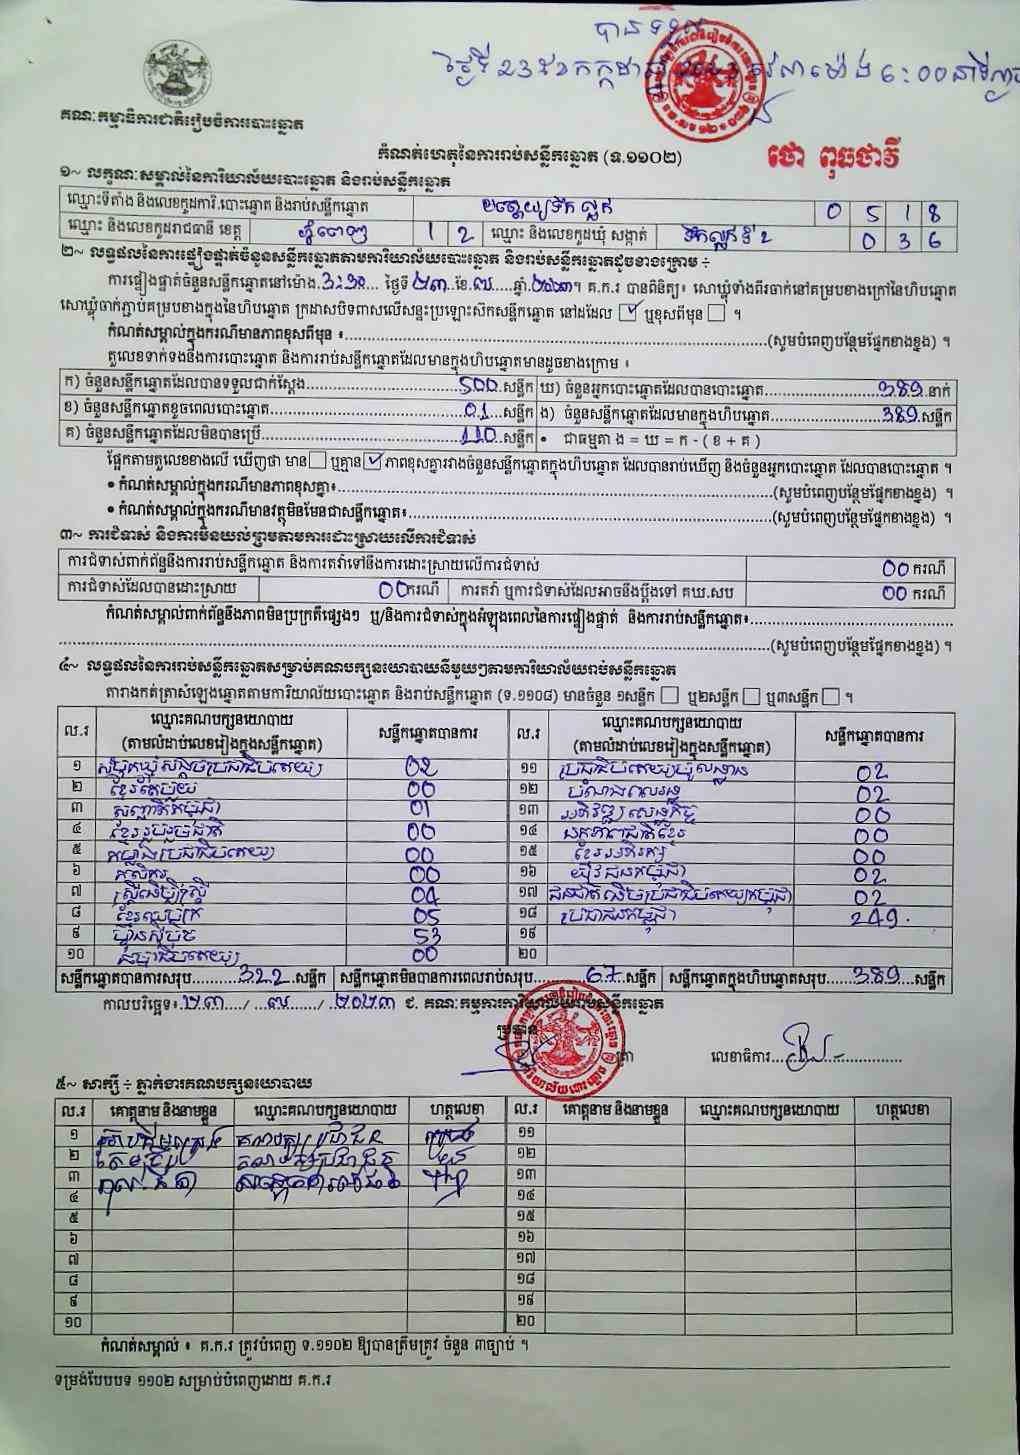 បានទទួល
ថ្ងៃទី 23 ខែ កក្កដា ឆ្នាំ 2023 វេលាម៉ោង 6:00 នាទីល្ងាច
គណៈកម្មាធិការជាតិរៀបចំការបោះឆ្នោត
កំណត់ហេតុនៃការរាប់សន្លឹកឆ្នោត (ទ.១១០២)
ថោ ពុធថាវី
១~ លក្ខណៈសម្គាល់នៃការិយាល័យបោះឆ្នោត និងរាប់សន្លឹកឆ្នោត
ឈ្មោះទីតាំង និងលេខកូដការិ.បោះឆ្នោត និងរាប់សន្លឹកឆ្នោត ទឹកល្អក់ 0 5 1 8
ឈ្មោះ និងលេខកូដរាជធានី ខេត្ត ភ្នំពេញ 1 2 ឈ្មោះ និងលេខកូដឃុំ សង្កាត់ ទឹកល្អក់ទី 2 0 3 6
២~ លទ្ធផលនៃការផ្ទៀងផ្ទាត់ចំនួនសន្លឹកឆ្នោតតាមការិយាល័យបោះឆ្នោត និងរាប់សន្លឹកឆ្នោតដូចខាងក្រោម ÷
ការផ្ទៀងផ្ទាត់ចំនួនសន្លឹកឆ្នោតនៅម៉ោង.3:30.... ថ្ងៃទី ២៣..ខែ.៧.....ឆ្នាំ.២០២៣។ គ.ក.រ បានពិនិត្យ៖ សោឃ្លុំទាំងពីរចាក់នៅគម្របខាងក្រៅនៃហិបឆ្នោត
សោឃ្លុំចាក់ភ្ជាប់គម្របខាងក្នុងនៃហិបឆ្នោត ក្រដាសបិទពាសលើសន្ទះប្រឡោះស៊កសន្លឹកឆ្នោត នៅដដែល ☑ ឬខុសពីមុន ☐ ។
កំណត់សម្គាល់ក្នុងករណីមានភាពខុសពីមុន ៖......(សូមបំពេញបន្ថែមផ្នែកខាងខ្នង) ។
តួលេខទាក់ទងនឹងការបោះឆ្នោត និងការរាប់សន្លឹកឆ្នោតដែលមានក្នុងហិបឆ្នោតមានដូចខាងក្រោម ៖
ក) ចំនួនសន្លឹកឆ្នោតដែលបានទទួលជាក់ស្ដែង......500..សន្លឹក ឃ) ចំនួនអ្នកបោះឆ្នោតដែលបានបោះឆ្នោត......389 នាក់
ខ) ចំនួនសន្លឹកឆ្នោតខូចពេលបោះឆ្នោត......01...សន្លឹក ង) ចំនួនសន្លឹកឆ្នោតដែលមានក្នុងហិបឆ្នោត......389 សន្លឹក
គ) ចំនួនសន្លឹកឆ្នោតដែលមិនបានប្រើ......110..សន្លឹក • ជាធម្មតា ង = ឃ = ក - ( ខ + គ )
ផ្អែកតាមតួលេខខាងលើ ឃើញថា មាន ☐ ឬគ្មាន ☑ ភាពខុសគ្នារវាងចំនួនសន្លឹកឆ្នោតក្នុងហិបឆ្នោត ដែលបានរាប់ឃើញ និងចំនួនអ្នកបោះឆ្នោត ដែលបានបោះឆ្នោត ។
• កំណត់សម្គាល់ក្នុងករណីមានភាពខុសគ្នា៖......(សូមបំពេញបន្ថែមផ្នែកខាងខ្នង) ។
• កំណត់សម្គាល់ក្នុងករណីមានវត្ថុមិនមែនជាសន្លឹកឆ្នោត៖......(សូមបំពេញបន្ថែមផ្នែកខាងខ្នង) ។
៣~ ការជំទាស់ និងការមិនយល់ព្រមតាមការដោះស្រាយលើការជំទាស់
ការជំទាស់ពាក់ព័ន្ធនឹងការរាប់សន្លឹកឆ្នោត និងការតវ៉ាទៅនឹងការដោះស្រាយលើការជំទាស់ 00 ករណី
ការជំទាស់ដែលបានដោះស្រាយ 00 ករណី ការតវ៉ា ឬការជំទាស់ដែលអាចនឹងប្ដឹងទៅ គឃ.សប 00 ករណី
កំណត់សម្គាល់ពាក់ព័ន្ធនឹងភាពមិនប្រក្រតីផ្សេងៗ ឬ/និងការជំទាស់ក្នុងអំឡុងពេលនៃការផ្ទៀងផ្ទាត់ និងការរាប់សន្លឹកឆ្នោត៖......
......(សូមបំពេញបន្ថែមផ្នែកខាងខ្នង) ។
៤~ លទ្ធផលនៃការរាប់សន្លឹកឆ្នោតសម្រាប់គណបក្សនយោបាយនីមួយៗតាមការិយាល័យរាប់សន្លឹកឆ្នោត
តារាងកត់ត្រាសំឡេងឆ្នោតតាមការិយាល័យបោះឆ្នោត និងរាប់សន្លឹកឆ្នោត (ទ.១១០៨) មានចំនួន ១សន្លឹក ☐ ឬ២សន្លឹក ☐ ឬ៣សន្លឹក ☐ ។
ល.រ ឈ្មោះគណបក្សនយោបាយ (តាមលំដាប់លេខរៀងក្នុងសន្លឹកឆ្នោត) សន្លឹកឆ្នោតបានការ ល.រ ឈ្មោះគណបក្សនយោបាយ (តាមលំដាប់លេខរៀងក្នុងសន្លឹកឆ្នោត) សន្លឹកឆ្នោតបានការ
១ សំបុកឃ្មុំសង្គមប្រជាធិបតេយ្យ 02 ១១ ប្រជាធិបតេយ្យមូលដ្ឋាន 02
២ ខ្មែរតែមួយ 00 ១២ បំណងពលរដ្ឋ 02
៣ សញ្ជាតិកម្ពុជា 01 ១៣ អភិវឌ្ឍសេដ្ឋកិច្ច 00
៤ ខ្មែររួបរួមជាតិ 00 ១៤ ឯកភាពជាតិខ្មែរ 00
៥ កម្លាំងប្រជាធិបតេយ្យ 00 ១៥ ខ្មែរអភិរក្ស 00
៦ កសិករ 00 ១៦ យុវជនកម្ពុជា 02
៧ ស្ត្រីដើម្បីស្ត្រី 04 ១៧ ជនជាតិដើមប្រជាធិបតេយ្យកម្ពុជា 02
៨ ខ្មែរឈប់ក្រ 05 ១៨ ប្រជាជនកម្ពុជា 249
៩ ហ៊្វុនស៊ិនប៉ិច 53 ១៩
១០ ធម្មាធិបតេយ្យ 00 ២០
សន្លឹកឆ្នោតបានការសរុប...322..សន្លឹក សន្លឹកឆ្នោតមិនបានការពេលរាប់សរុប......67..សន្លឹក សន្លឹកឆ្នោតក្នុងហិបឆ្នោតសរុប...389...សន្លឹក
កាលបរិច្ឆេទ៖ ២៣..../ ..៧...../ ២០២៣ ជ. គណៈកម្មការការិយាល័យរាប់សន្លឹកឆ្នោត
ប្រធាន
ត្រា លេខាធិការ......
៥~ សាក្សី ÷ ភ្នាក់ងារគណបក្សនយោបាយ
ល.រ គោត្តនាម និងនាមខ្លួន ឈ្មោះគណបក្សនយោបាយ ហត្ថលេខា ល.រ គោត្តនាម និងនាមខ្លួន ឈ្មោះគណបក្សនយោបាយ ហត្ថលេខា
១ គណបក្សប្រជាជន ១១
២ គណបក្សប្រជាជន ១២
៣ ១៣
៤ ១៤
៥ ១៥
៦ ១៦
៧ ១៧
៨ ១៨
៩ ១៩
១០ ២០
កំណត់សម្គាល់ ៖ គ.ក.រ ត្រូវបំពេញ ទ.១១០២ ឱ្យបានត្រឹមត្រូវ ចំនួន ៣ច្បាប់ ។
ទម្រង់បែបបទ ១១០២ សម្រាប់បំពេញដោយ គ.ក.រ